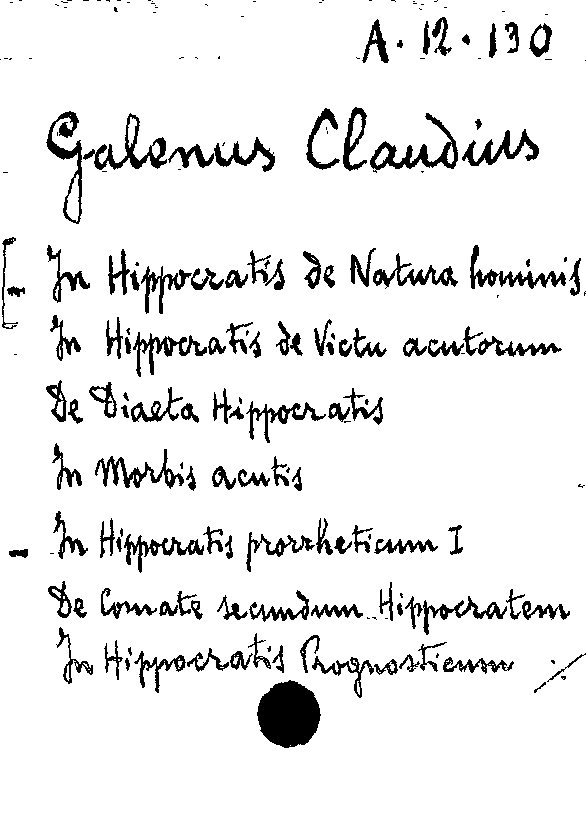 A. 12. 130
Galenus Claudius
In Hippocratis de Natura hominis
In Hippocratis de Victu acutorum
De Diaeta Hippocratis
In Morbis acutis
- In Hippocratis prorrheticum I
De Comate secundum Hippocratem
In Hippocratis Prognosticum ./.